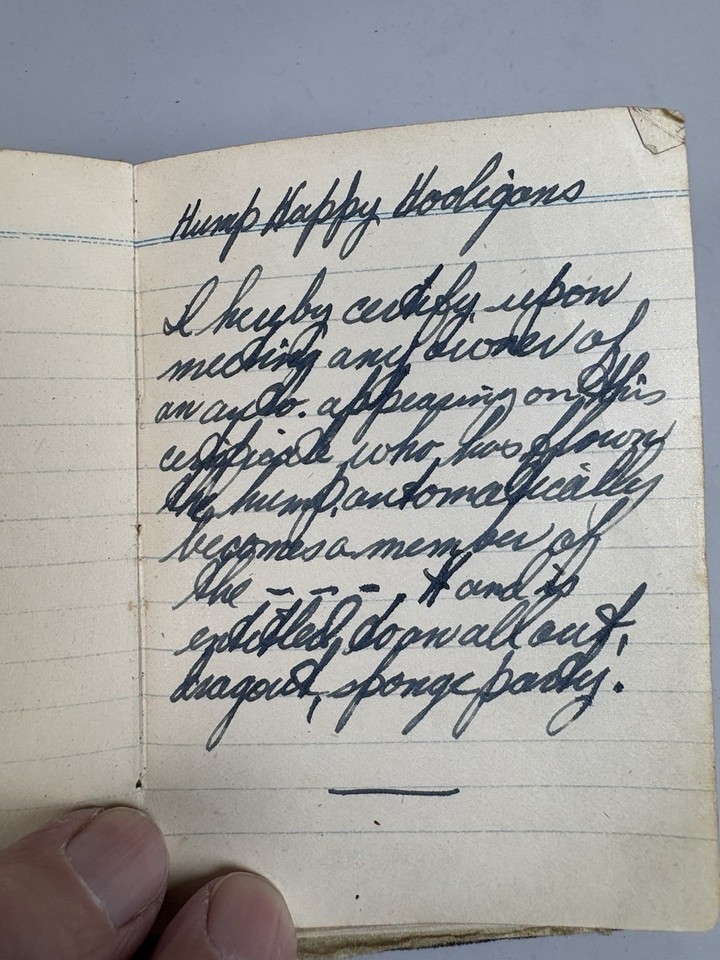 Hump Happy Hooligans
I hereby certify upon
meeting any owner of
an auto. appearing on this
certificate who has flown
the hump, automatically
becomes a member of
the - - - H and is
entitled to an all out,
dragout, sponge party.